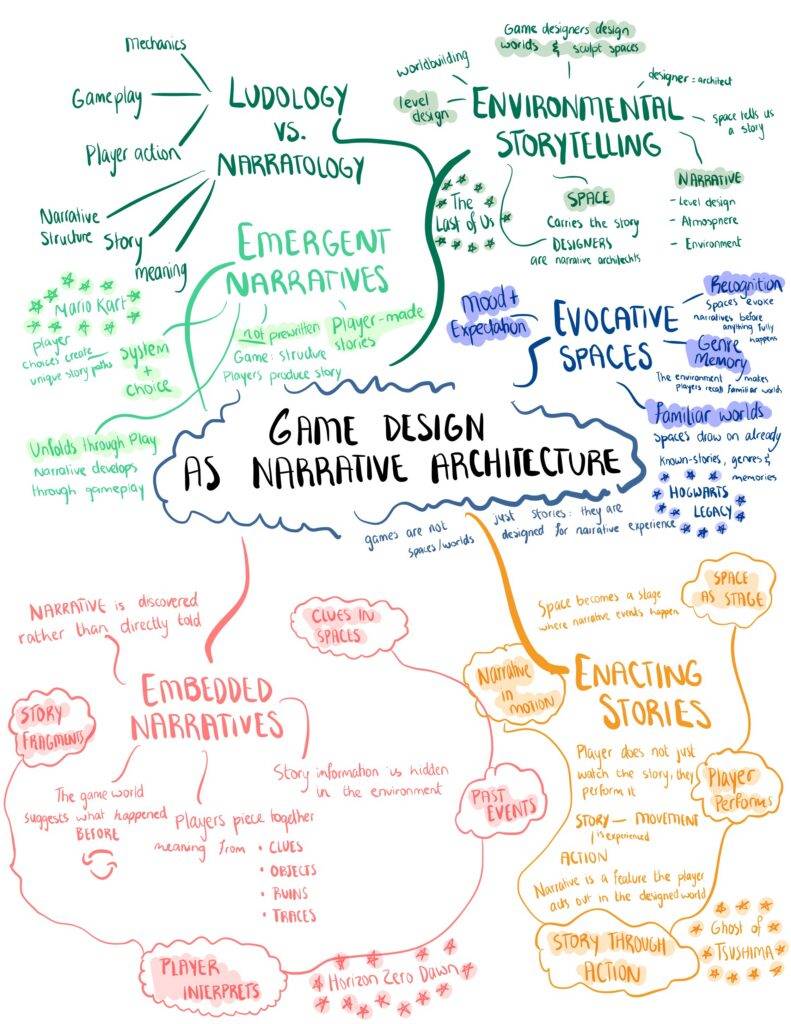 Mechanics
Gameplay
Player action
Narrative
Structure
Story
meaning
LUDOLOGY
VS.
NARRATOLOGY
Game designers design
worlds & sculpt spaces
worldbuilding
level
design
designer = architect
ENVIRONMENTAL
STORYTELLING
space tells us
a story
The
Last of Us
SPACE
Carries the story
DESIGNERS
are narrative architechts
NARRATIVE
- Level design
- Atmosphere
- Environment
EMERGENT
NARRATIVES
Mario Kart
Player
choices create
unique story paths
system
+
choice
not prewritten
Game: structure
Players produce story
Player-made
stories
Unfolds through Play
Narrative develops
through gameplay
Mood +
Expectation
EVOCATIVE
SPACES
Recognition
Spaces evoke
narratives before
anything fully
happens
Genre
Memory
The environment makes
players recall familiar worlds
Familiar worlds
Spaces draw on already
known-stories, genres &
memories
HOGWARTS
LEGACY
GAME DESIGN
AS NARRATIVE ARCHITECTURE
games are not just stories: they are
spaces/worlds designed for narrative experience
NARRATIVE is discovered
rather than directly told
CLUES IN
SPACES
EMBEDDED
NARRATIVES
STORY
FRAGMENTS
Story information is hidden
in the environment
The game world
suggests what happened
BEFORE
Players piece together
meaning from
• CLUES
• OBJECTS
• RUINS
• TRACES
PAST
EVENTS
PLAYER
INTERPRETS
Horizon Zero Dawn
Space becomes a stage
where narrative events happen
SPACE
AS STAGE
Narrative
in
motion
ENACTING
STORIES
Player does not just
watch the story, they
perform it
Player
Performs
STORY — MOVEMENT
is experienced
ACTION
Narrative is a feature the player
acts out in the designed world
STORY THROUGH
ACTION
Ghost of
TSUSHIMA